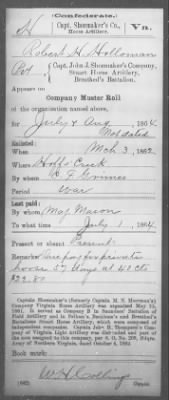 Confederate.
H Capt. Shoemaker's Co., Va.
Horse Artillery.
Robert H. Holloman
Pvt, Capt. John J. Shoemaker's Company,
Stuart Horse Artillery,
Breathed's Battalion.
Appears on
Company Muster Roll
of the organization named above,
for July & Aug, 1864
Not dated
Enlisted:
When Mch 3, 1862.
Where Creek
By whom Grimes
Period War
Last paid:
By whom Maj Mason
To what time July 1, 1864.
Present or absent Present
Remarks: Due pay for private
horse 57 days at 40 cts
$22.80
Captain Shoemaker's (formerly Captain M. N. Moorman's)
Company Virginia Horse Artillery was organized May 10,
1861. It served as Company B in Beauregard's Battalion of
Field Artillery and in Pelham's, Beckham's and Breathed's
Battalions Stuart Horse Artillery, which were composed of
independent horse artillery companies.
Captain John H. Thompson's Company
of Virginia Light Artillery was disbanded and part of
the men assigned to this company, per S. O. No. 209, Hdqrs.
Army of Northern Virginia, dated October 4, 1862.
Book mark:
W H Collings
(642) Copyist.